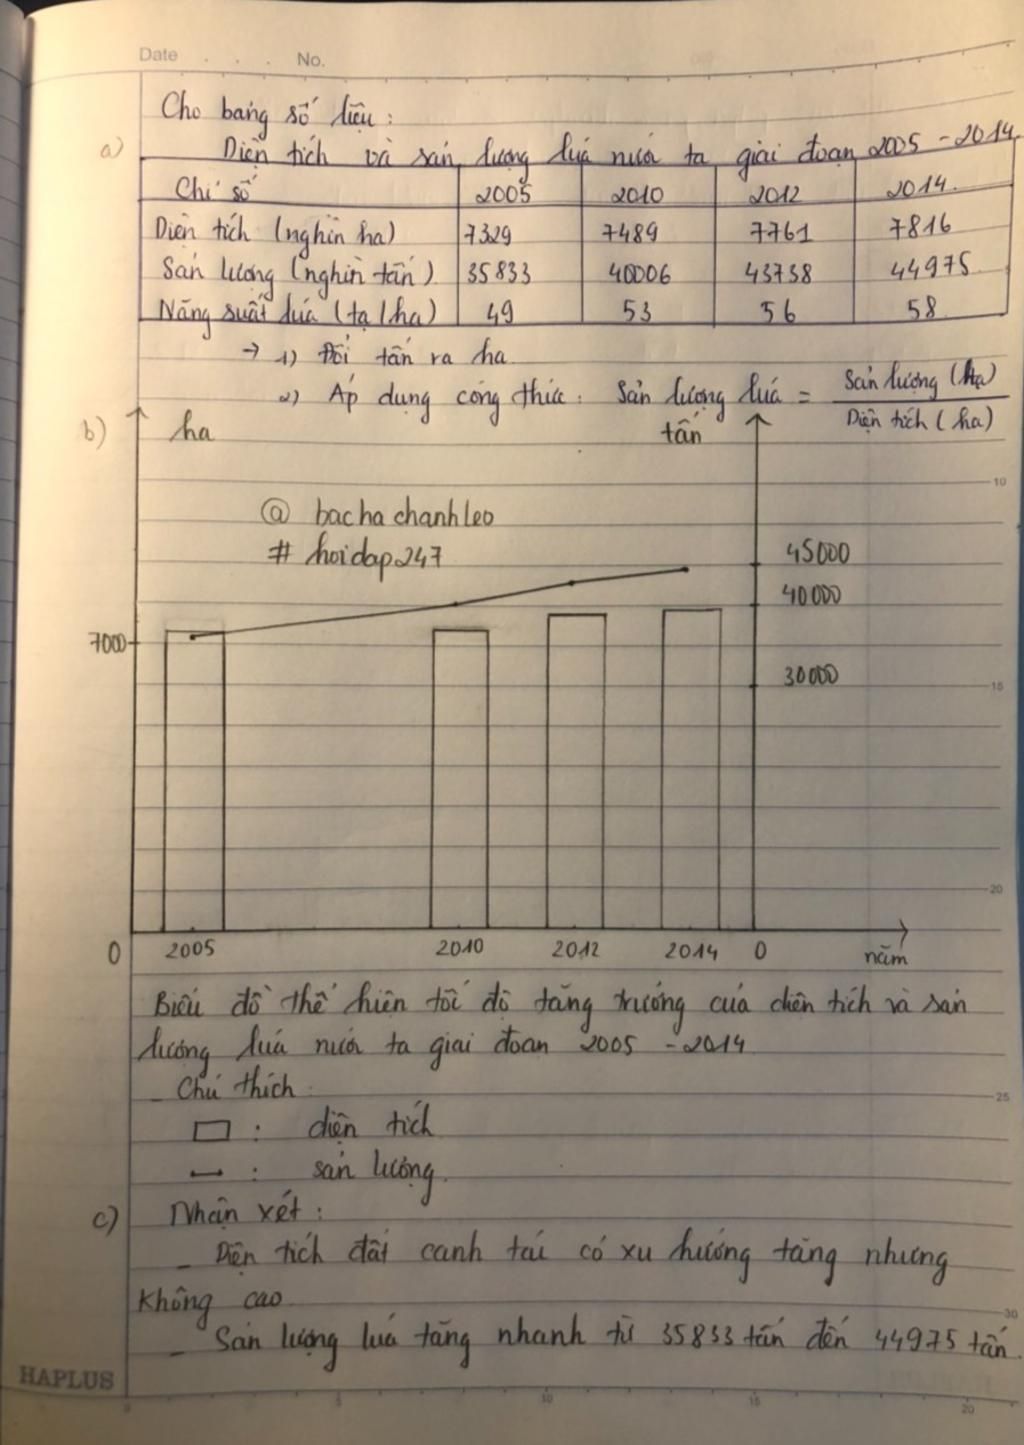 Date . . . No.
Cho bảng số liệu :
a) Diện tích và sản lượng lúa nước ta giai đoạn 2005 - 2014
Chỉ số 2005 2010 2012 2014
Diện tích (nghìn ha) 7329 7489 7761 7816
Sản lượng (nghìn tấn) 35833 40006 43738 44975
Năng suất lúa (tạ/ha) 49 53 56 58
→ 1) Đổi tấn ra ha
2) Áp dụng công thức : Sản lượng lúa = Sản lượng (tạ)
Diện tích (ha)
b) ha tấn
10
@ bachachanhleo
# hoidap247
45000
40000
7000
30000
15
20
0 2005 2010 2012 2014 0 năm
Biểu đồ thể hiện tốc độ tăng trưởng của diện tích và sản
lượng lúa nước ta giai đoạn 2005 - 2014
- Chú thích :
25
: diện tích
: sản lượng
c) Nhận xét :
- Diện tích đất canh tác có xu hướng tăng nhưng
không cao
30
- Sản lượng lúa tăng nhanh từ 35833 tấn đến 44975 tấn.
HAPLUS
0 5 10 15 20